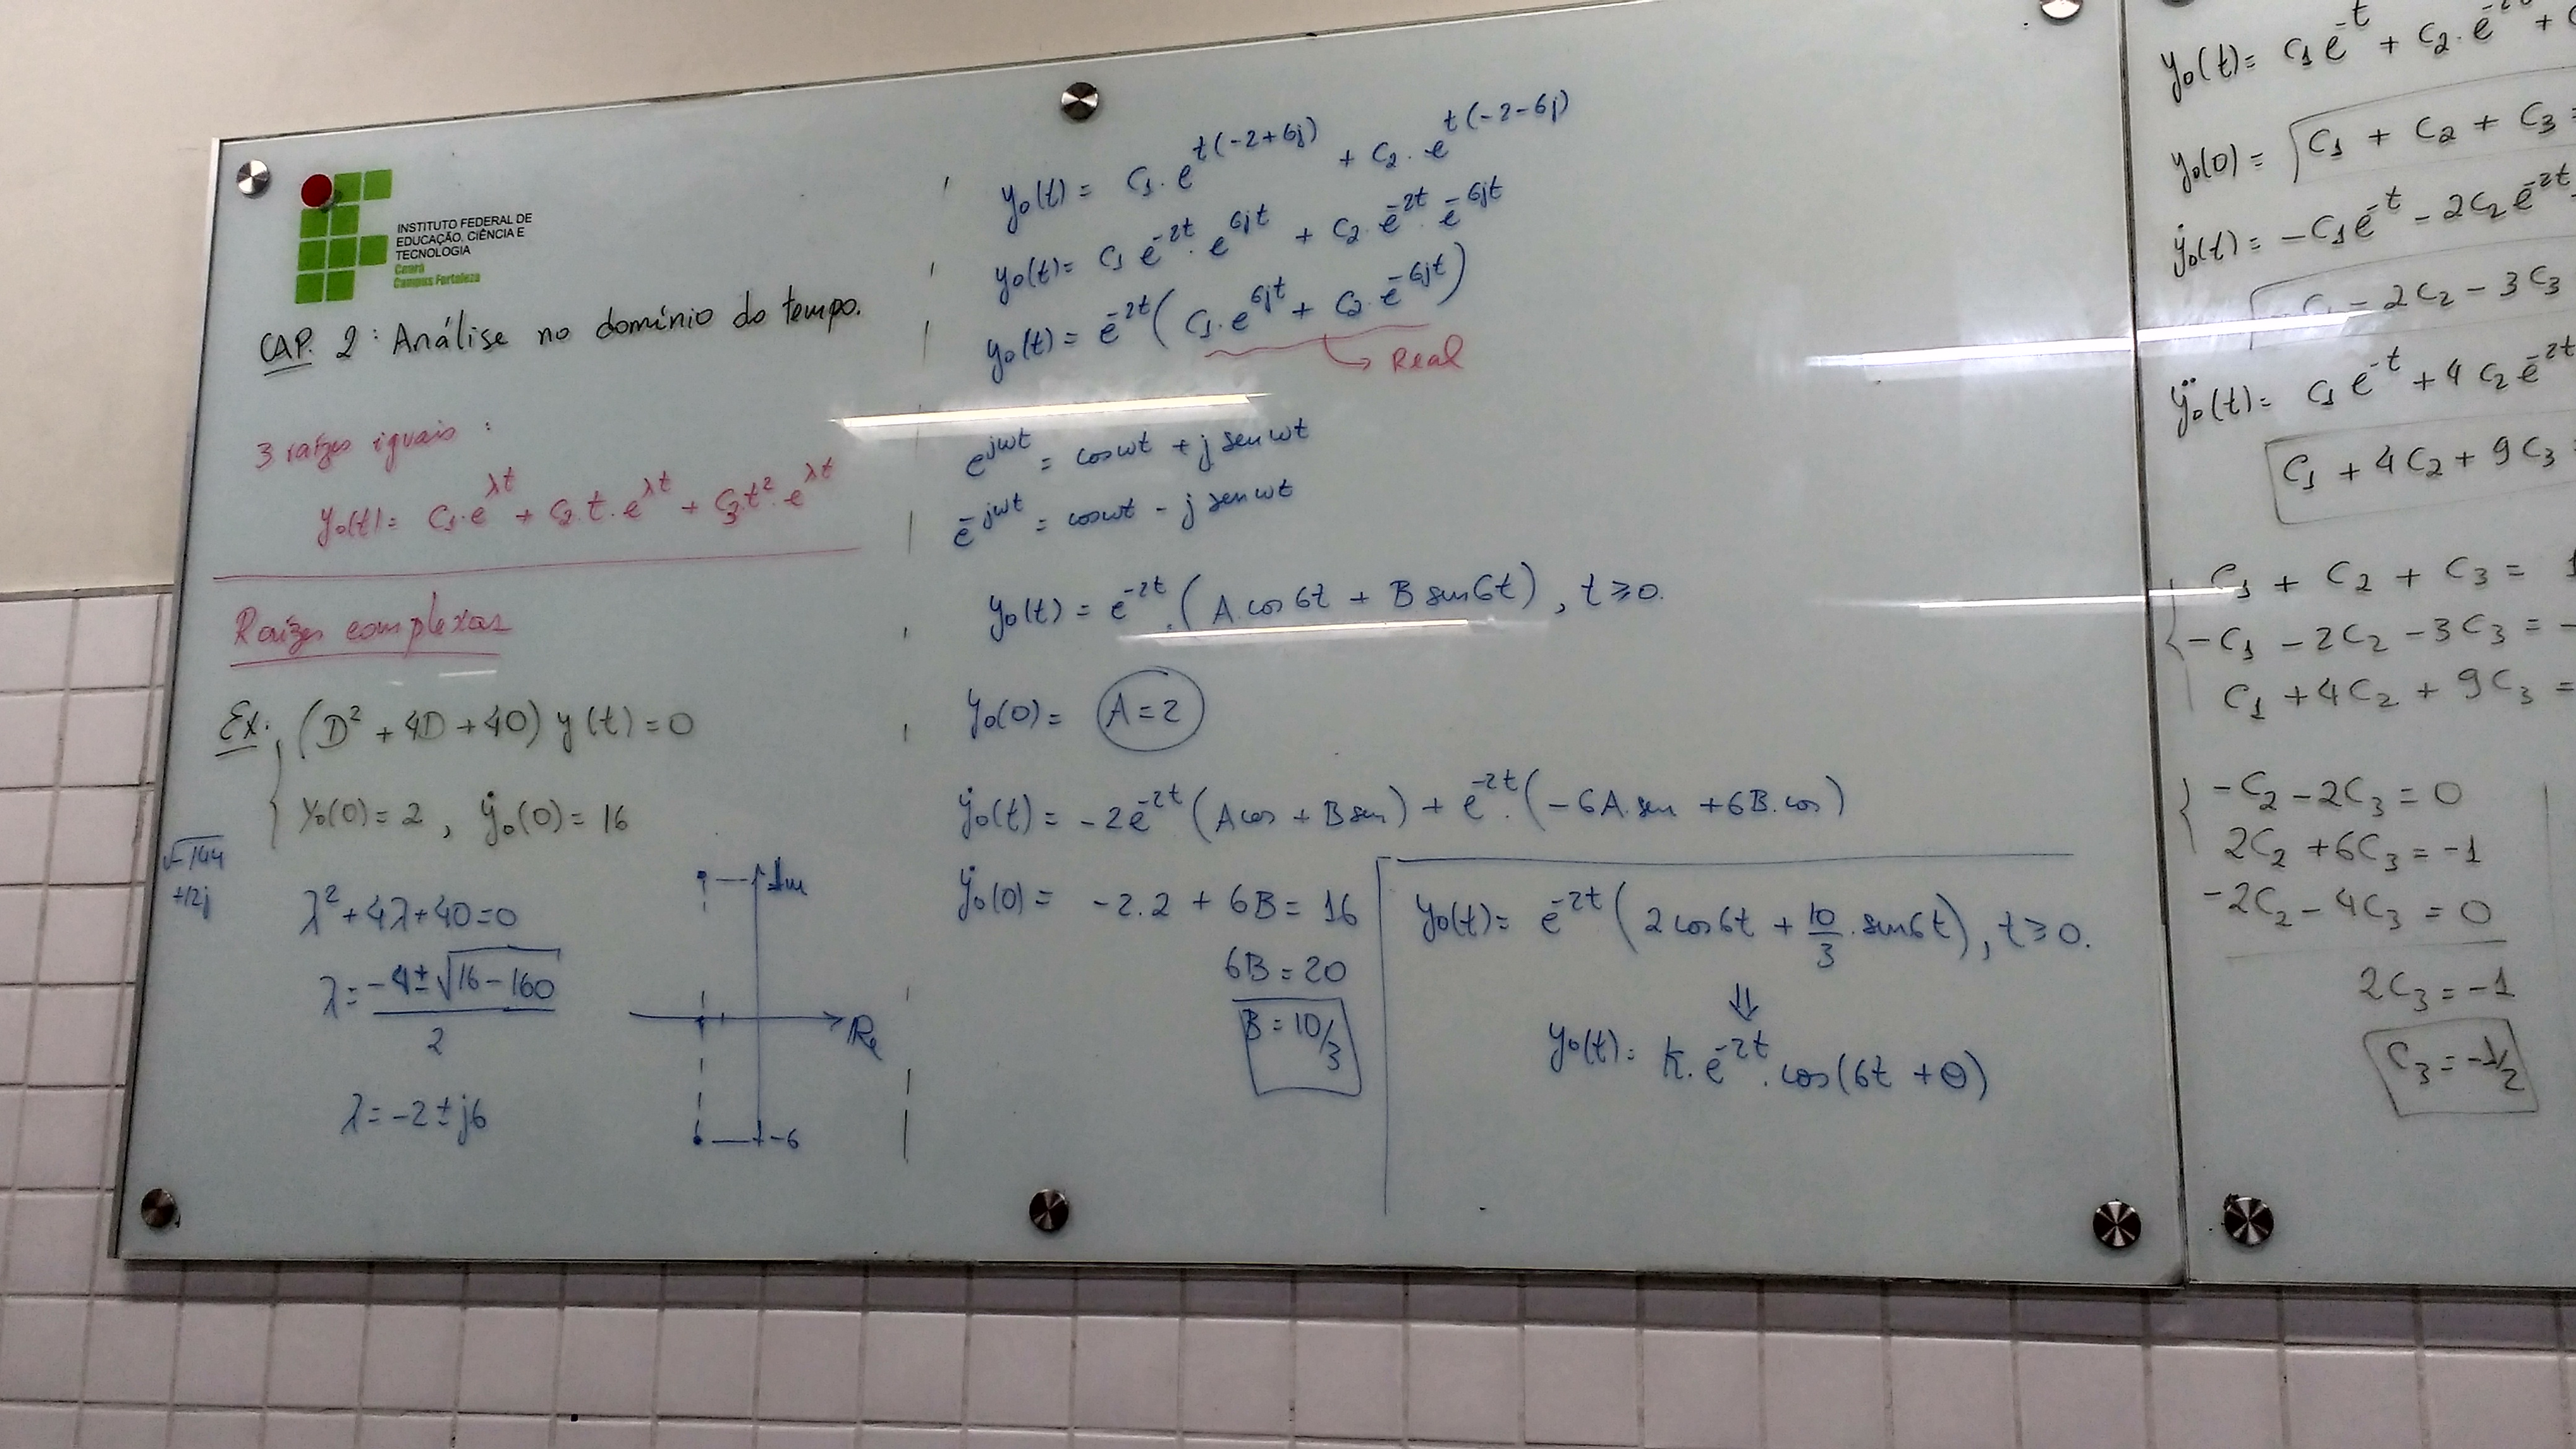 INSTITUTO FEDERAL DE
EDUCAÇÃO, CIÊNCIA E
TECNOLOGIA
Ceará
Campus Fortaleza
CAP. 2: Análise no domínio do tempo.
3 raízes iguais:
y₀(t) = C₁.e^{λt} + C₂.t.e^{λt} + C₃t².e^{λt}
Raízes complexas
Ex: (D² + 4D + 40) y(t) = 0
y₀(0) = 2, ẏ₀(0) = 16
√-144
+12j
λ² + 4λ + 40 = 0
λ = (-4 ± √(16 - 160))/2
λ = -2 ± j6
Im
Re
-6
y₀(t) = C₁.e^{t(-2+6j)} + C₂.e^{t(-2-6j)}
y₀(t) = C₁ e^{-2t}.e^{6jt} + C₂.e^{-2t}.e^{-6jt}
y₀(t) = e^{-2t}(C₁.e^{6jt} + C₂.e^{-6jt})
Real
e^{jωt} = cosωt + j senωt
e^{-jωt} = cosωt - j senωt
y₀(t) = e^{-2t}.(A.cos6t + B sen6t), t ≥ 0.
y₀(0) = A = 2
ẏ₀(t) = -2e^{-2t}(Acos + Bsen) + e^{-2t}.(-6A.sen + 6B.cos)
ẏ₀(0) = -2.2 + 6B = 16
6B = 20
B = 10/3
y₀(t) = e^{-2t}(2cos6t + 10/3.sen6t), t ≥ 0.
⇓
y₀(t) = K.e^{-2t}.cos(6t + θ)
y₀(t) = C₁e^{-t} + C₂.e^{-2t} +
y₀(0) = C₁ + C₂ + C₃ =
ẏ₀(t) = -C₁e^{-t} - 2C₂e^{-2t}
-C₁ - 2C₂ - 3C₃
ÿ₀(t) = C₁e^{-t} + 4C₂e^{-2t}
C₁ + 4C₂ + 9C₃ =
C₁ + C₂ + C₃ = 1
-C₁ - 2C₂ - 3C₃ = -
C₁ + 4C₂ + 9C₃ =
-C₂ - 2C₃ = 0
2C₂ + 6C₃ = -1
-2C₂ - 4C₃ = 0
2C₃ = -1
C₃ = -1/2